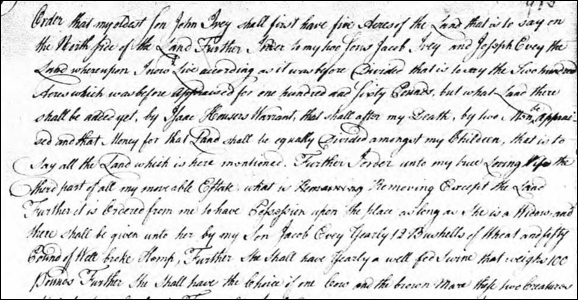 Order that my oldest Son John Ivey shall first have five Acres of the Land that is to say on
the North side of the Land Further I order to my two Sons Jacob Ivey and Joseph Evey the
Land whereupon I now Live acording as it was before Divided that is to say the Two hundred
Acres which was before Appraised for one hundred and Sixty Pounds, but what Land there
shall be added yet, by Isaac Housers Warrant, that shall after my Death, by two Men, be Apprai=
sed and that Money for that Land shall be equally Divided amongst my Children, that is to
Say all the Land which is here mentioned. Further I order unto my Loving Wife the
third part of all my moveable Estate what is Remaining Removing Except the Land
Further it is Ordered from me to have Possession upon the place as long as She is a Widow, and
there shall be given unto her by my Son Jacob Evey Yearly 12 Bushells of Wheat and fifty
Pound of Well broke Hemp, Further She shall have Yearly a well fed Swine that weighs 100
Pounds Further She Shall have the Choice of one Cow and the brown Mare these two Creatures